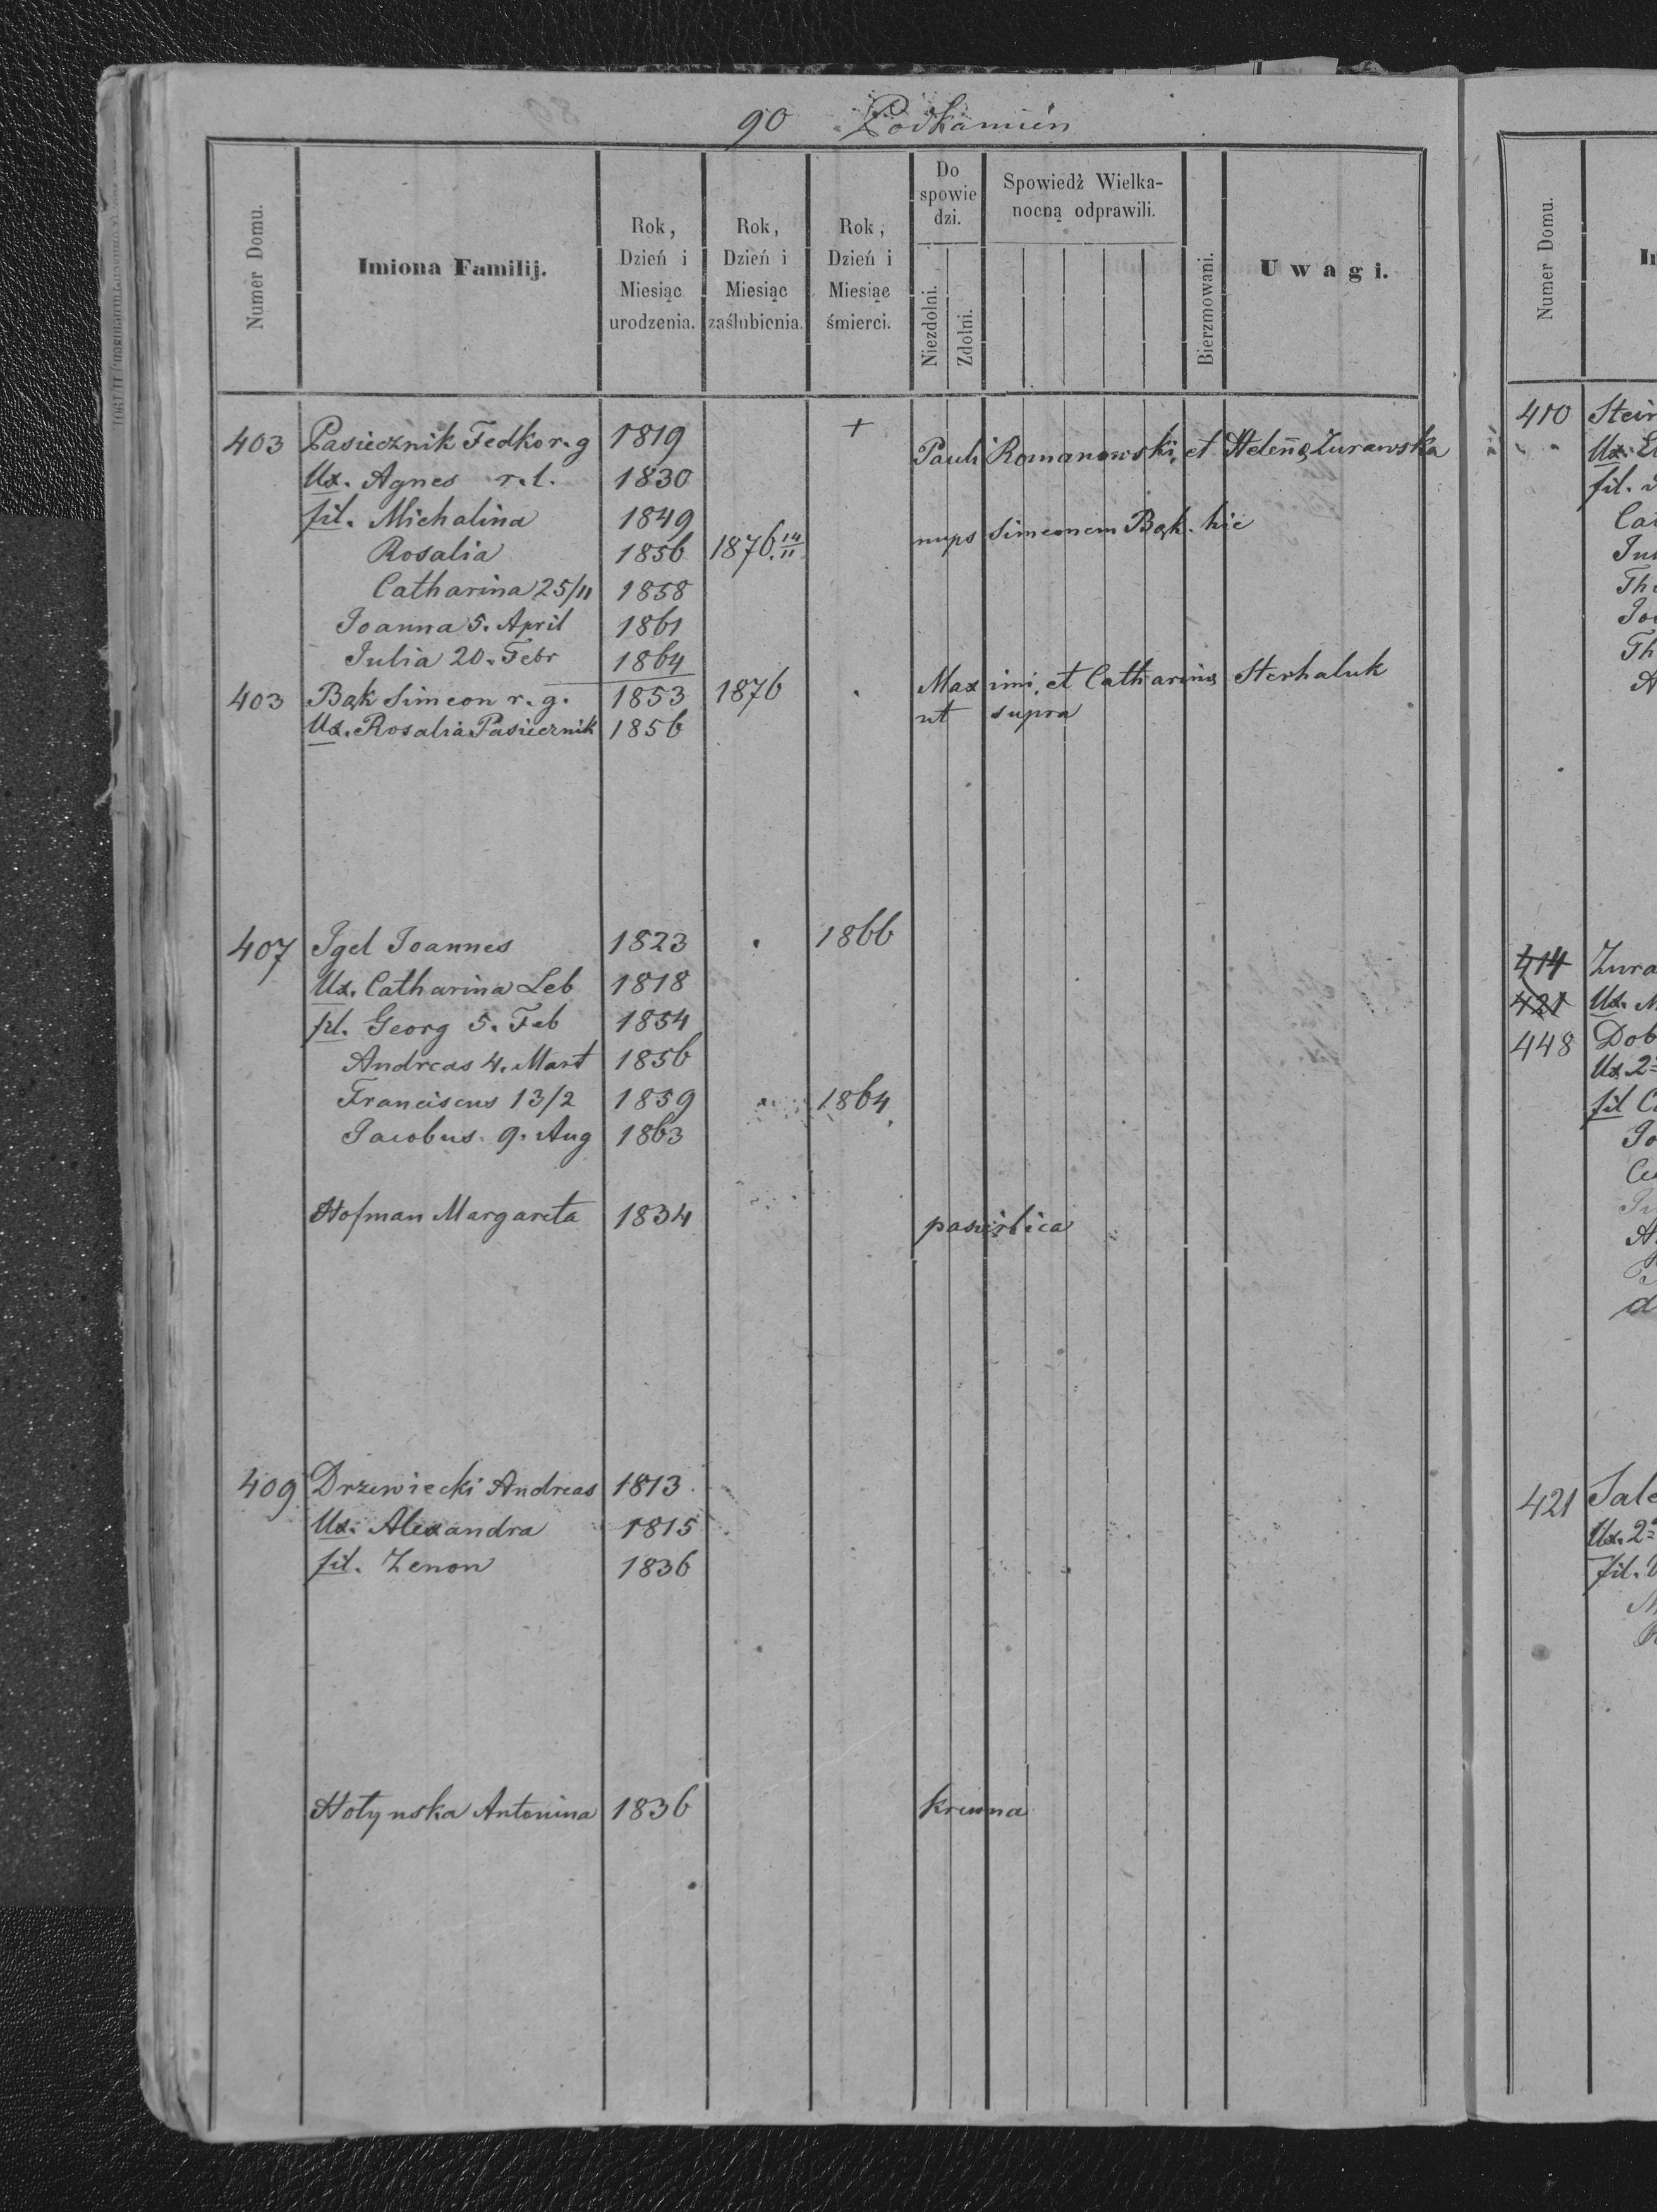 90 Podkamień
Numer Domu.
Imiona Familij.
Rok, Dzień i Miesiąc urodzenia.
Rok, Dzień i Miesiąc zaślubienia.
Rok, Dzień i Miesiąc śmierci.
Do spowiedzi.
Niezdolni.
Zdolni.
Spowiedź Wielkanocną odprawili.
Bierzmowani.
Uwagi.
403 Pasiecznik Fedko r. g 1819 + Pauli Romanowski, et Helenę Żurawska
Ux. Agnes r. l. 1830
fil. Michalina 1849
Rosalia 1856 1876 14/11 nups Simeonem Bąk. hic
Catharina 25/11 1858
Joanna 5. April 1861
Julia 20. Febr 1864
403 Bąk Simeon r. g. 1853 1876 Maximi, et Catharina Sterhaluk
Ux. Rosalia Pasiecznik 1856 ut supra
407 Igel Joannes 1823 1866
Ux. Catharina Leb 1818
fil. Georg 5. Feb 1854
Andreas 4. Mart 1856
Franciscus 13/2 1859 1864
Jacobus. 9. Aug 1863
Hofman Margareta 1834 pasierbica
409 Drzewiecki Andreas 1813
Ux. Alexandra 1815
fil. Zenon 1836
Hołynska Antonina 1836 krewna
Numer Domu.
410
Ux.
fil.
414
421 Ux.
448
Ux. 2
fil
421
Ux. 2
fil.